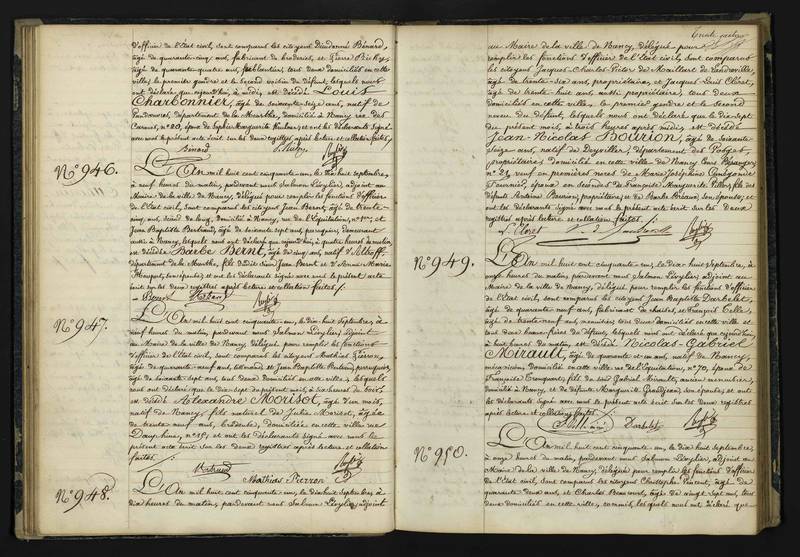 d'officier de l'Etat civil, sont comparus les citoyens Dieudonné Bénard,
âgé de quarante-cinq ans, fabricant de broderies, et Pierre
âgé de quarante-quatre ans, tous deux domiciliés en cette
ville, le premier gendre et le second voisin du défunt, lesquels nous
ont déclaré que aujourd'hui, à midi, est décédé Louis
Charbonnier, âgé de soixante-seize ans, natif de
département de la Meurthe, domicilié à Nancy rue des
Carmes, n° 20, époux de Sophie Marguerite et ont les déclarants signé
avec nous le présent acte écrit sur les deux registres après lecture et collation faites.
Bénard
N° 946.
L'An mil huit cent cinquante-un, le dix huit septembre, à
neuf heures du matin, pardevant nous Salmon Lévylier, adjoint au
Maire de la ville de Nancy, délégué pour remplir les fonctions d'officier
de l'Etat civil, sont comparus les citoyens Jean Bernt, âgé de trente-
cinq ans, scieur de long, domicilié à Nancy, rue de l'Equitation, n° et
Jean Baptiste Bertrand, âgé de soixante sept ans, perruquier, demeurant
aussi à Nancy, lesquels nous ont déclaré que aujourd'hui, à quatre heures du matin,
est décédée Barbe Bernt, âgée de cinq ans, natif d'
département de la Meurthe, fille de Jean Bernt et d'Anne Marie
conjoints; et ont les déclarants signé avec nous le présent acte
écrit sur les deux registres après lecture et collation faites.
N° 947.
L'An mil huit cent cinquante-un, le dix huit Septembre, à
neuf heures du matin, pardevant nous Salmon Lévylier Adjoint
au Maire de la ville de Nancy, délégué pour remplir les fonctions
d'officier de l'Etat civil, sont comparus les citoyens Mathias Pierron,
âgé de quarante-neuf ans, et Jean Baptiste Bertrand, perruquier,
âgé de soixante sept ans, tous deux domiciliés en cette ville, lesquels
nous ont déclaré que le dix-sept du présent mois, à six heures du soir,
est décédé Alexandre Morisot, âgé d'un mois,
natif de Nancy, fils naturel de Julie Morisot, âgée
de trente neuf ans, brodeuse, domiciliée en cette ville rue
Dauphine, n° 151; et ont les déclarants signé avec nous le
présent acte écrit sur les deux registres après lecture et collation
faites.
Bertrand
Mathias Pierron
N° 948.
L'An mil huit cent cinquante-un, le dix huit septembre, à
dix heures du matin, pardevant nous Salmon Lévylier, adjoint
au Maire de la ville de Nancy, délégué pour
remplir les fonctions d'officier de l'Etat civil, sont comparus
les citoyens Jacques-Charles Victor de Maillart de Landreville,
âgé de trente-six ans, propriétaire, et Jacques Louis Cléret,
âgé de trente-huit ans aussi propriétaire, tous deux
domiciliés en cette ville, le premier gendre et le second
neveu du défunt, lesquels nous ont déclaré que le dix-sept
du présent mois, à trois heures après midi, est décédé
Jean-Nicolas BOURION, âgé de soixante
seize ans, natif de département des Vosges,
propriétaire, domicilié en cette ville de Nancy Cours
n° 21, veuf en premières noces de Marie Joséphine Cunégonde
époux en secondes de Françoise Marguerite fils des
défunts Antoine Bourion, propriétaire, et de Barbe son épouse, et
ont les déclarants signé avec nous le présent acte écrit sur les deux
registres après lecture et collation faites.
L. Cléret
N° 949.
L'An mil huit cent cinquante-un, le dix-huit septembre, à
onze heures du matin, pardevant nous Salmon Lévylier, adjoint au
Maire de la ville de Nancy, délégué pour remplir les fonctions d'officier
de l'Etat civil, sont comparus les citoyens Jean Baptiste Darbelet,
âgé de quarante-neuf ans, fabricant de chaises, et François
âgé de trente-neuf ans, menuisier, tous deux domiciliés en cette ville et
tous deux beau-frère du défunt, lesquels nous ont déclaré que aujourd'hui
à huit heures du matin, est décédé Nicolas-Gabriel
Mirault, âgé de quarante et un ans, natif de Nancy,
mécanicien, domicilié en cette ville rue de l'Equitation, n° 70, époux de
Françoise fils de feu Gabriel Mirault, ancien menuisier,
domicilié à Nancy, et de défunte Marguerite son épouse; et ont
les déclarants signé avec nous le présent acte écrit sur les deux registres
après lecture et collation faites.
Darbelet
N° 950.
L'An mil huit cent cinquante-un, le dix huit septembre,
à onze heures du matin, pardevant nous Salmon Lévylier, adjoint au
Maire de la ville de Nancy, délégué pour remplir les fonctions d'officier
de l'Etat civil, sont comparus les citoyens Christophe Vincent, âgé de
quarante deux ans, et Charles Beaumont, âgé de vingt sept ans, tous
deux domiciliés en cette ville, commis, lesquels nous ont déclaré que